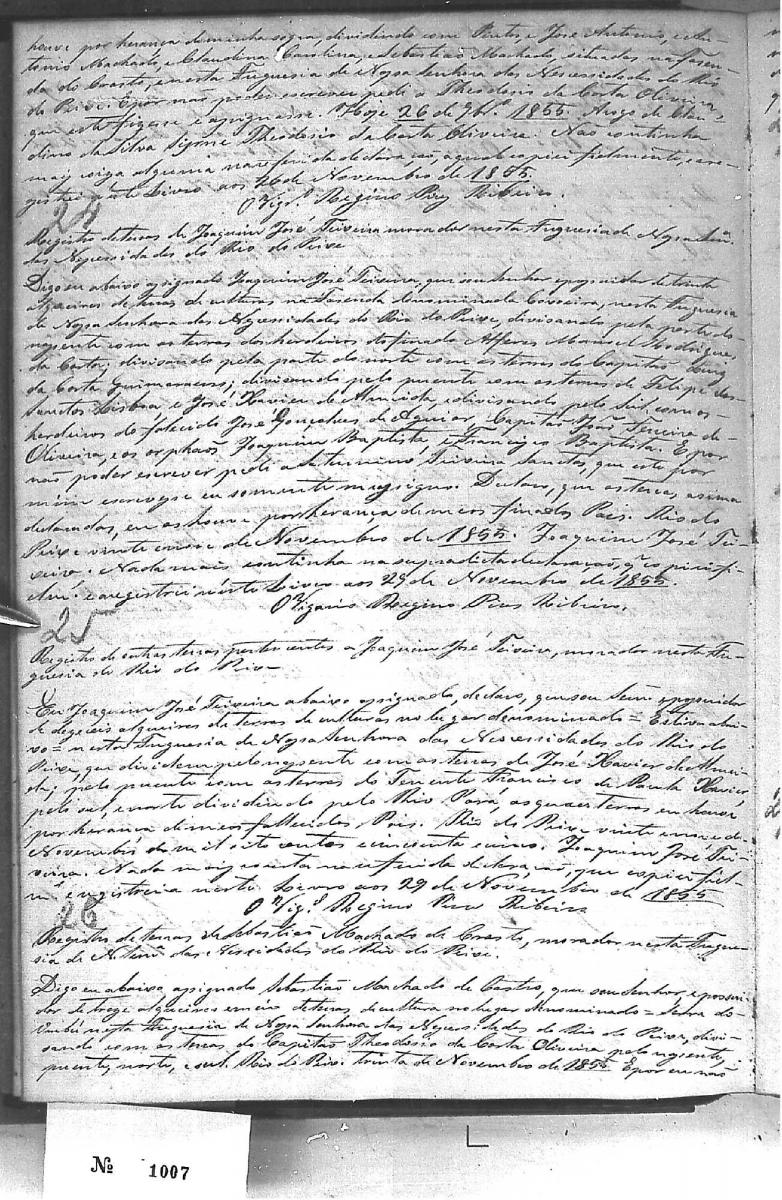 houve por herança de minha sogra, dividindo com Pinto, e José Antonio, e An-
tonio Machado, e Claudina Carolina, e Sebastião Machado, situadas na Fasen-
da do Crasto, e nesta Freguesia de Nossa Senhora das Necessidades do Rio
do Peixe. E por não poder escrever pedi a Theodosio da Costa Oliveira,
que este fizesse e assignasse. Hoje 26 de 9br.º 1855. Arogo de Clau-
dino da Silva Signe Theodosio da Costa Oliveira. Não continha
mais coisa alguma na referida declaração, a qual copiei fielmente, e re-
gistrei neste Livro aos 26 de Novembro de 1855.
O Vigr.º Regino Pires Ribeiro.
24
Registro de terras de Joaquim José Teixeira morador nesta Freguesia de Nossa Senr.ª
das Necessidades do Rio do Peixe
Digo eu abaixo assignado Joaquim José Teixeira, que sou senhor e possuidor de trinta
alqueires de terras de culturas na Fasenda denominada Coveira, nesta Freguesia
de Nossa Senhora das Necessidades do Rio do Peixe, divisando pela parte do
nascente com as terras dos herdeiros do finado Alferes Manoel Rodrigues
da Costa; divisando pela parte do norte com as terras do Capitão Luiz
da Costa Guimaraens; divisando pelo puente com as terras de Felipe dos
Santos Lisboa, e José Xavier de Almeida, e divisando pelo Sul com os
herdeiros do falecido José Gonçalves de Aguiar, Capitão João Teixeira de
Oliveira, e os orphaõs Joaquim Baptista, e Francisco Baptista. E por
não poder escrever pedi a Teixeira Santos, que este por
mim escrevesse eu somente me assigno. Declaro, que as terras assima
declaradas, eu as houve por herança de meos finados Pais. Rio do
Peixe vinte e nove de Novembro de 1855. Joaquim José Tei-
xeira. Nada mais continha na supradicta declaração, q̃ copiei fi-
elm.e e registrei n'este Livro aos 29 de Novembro de 1855.
O Vigario Regino Pires Ribeiro.
25
Registro de outras terras pertencentes a Joaquim José Teixeira, morador nesta Fre-
guesia do Rio do Peixe
Eu Joaquim José Teixeira abaixo assignado, declaro, que sou Senr. e possuidor
de dezeseis alqueires de terras de culturas no lugar denominado = Estiva abai-
xo = nesta Freguesia de Nossa Senhora das Necessidades do Rio do
Peixe, que dividem pelo nascente com as terras de José Xavier de Almei-
da; pelo puente com as terras do Tenente Francisco de Paula Xavier,
pelo sul, e norte dividindo pelo Rio Pará, as quaes terras eu houve
por herança de meos fallecidos Pais. Rio do Peixe vinte e nove de
Novembro de mil oito centos e cincoenta e cinco. Joaquim José Tei-
xeira. Nada mais consta na referida declaração, que copiei fiel-
m.e e registrei neste Livro aos 29 de Novembro de 1855
O Vig.º Regino Pires Ribeiro
26
Registro de terras de Sebastião Machado de Crasto, morador nesta Fregue-
sia de N. Senr.ª das Necessidades do Rio do Peixe.
Digo eu abaixo assignado Sebastião Machado de Castro, que sou Senhor e possui-
dor de treze alqueires e meio de terras de cultura no lugar denominado = Serra do
Urubú nesta Freguesia de Nossa Senhora das Necessidades do Rio do Peixe, divi-
sando com as terras do Capitão Theodosio da Costa Oliveira pelo nascente,
puente, norte, e sul. Rio do Peixe trinta de Novembro de 1855. E por eu não
Nº 1007